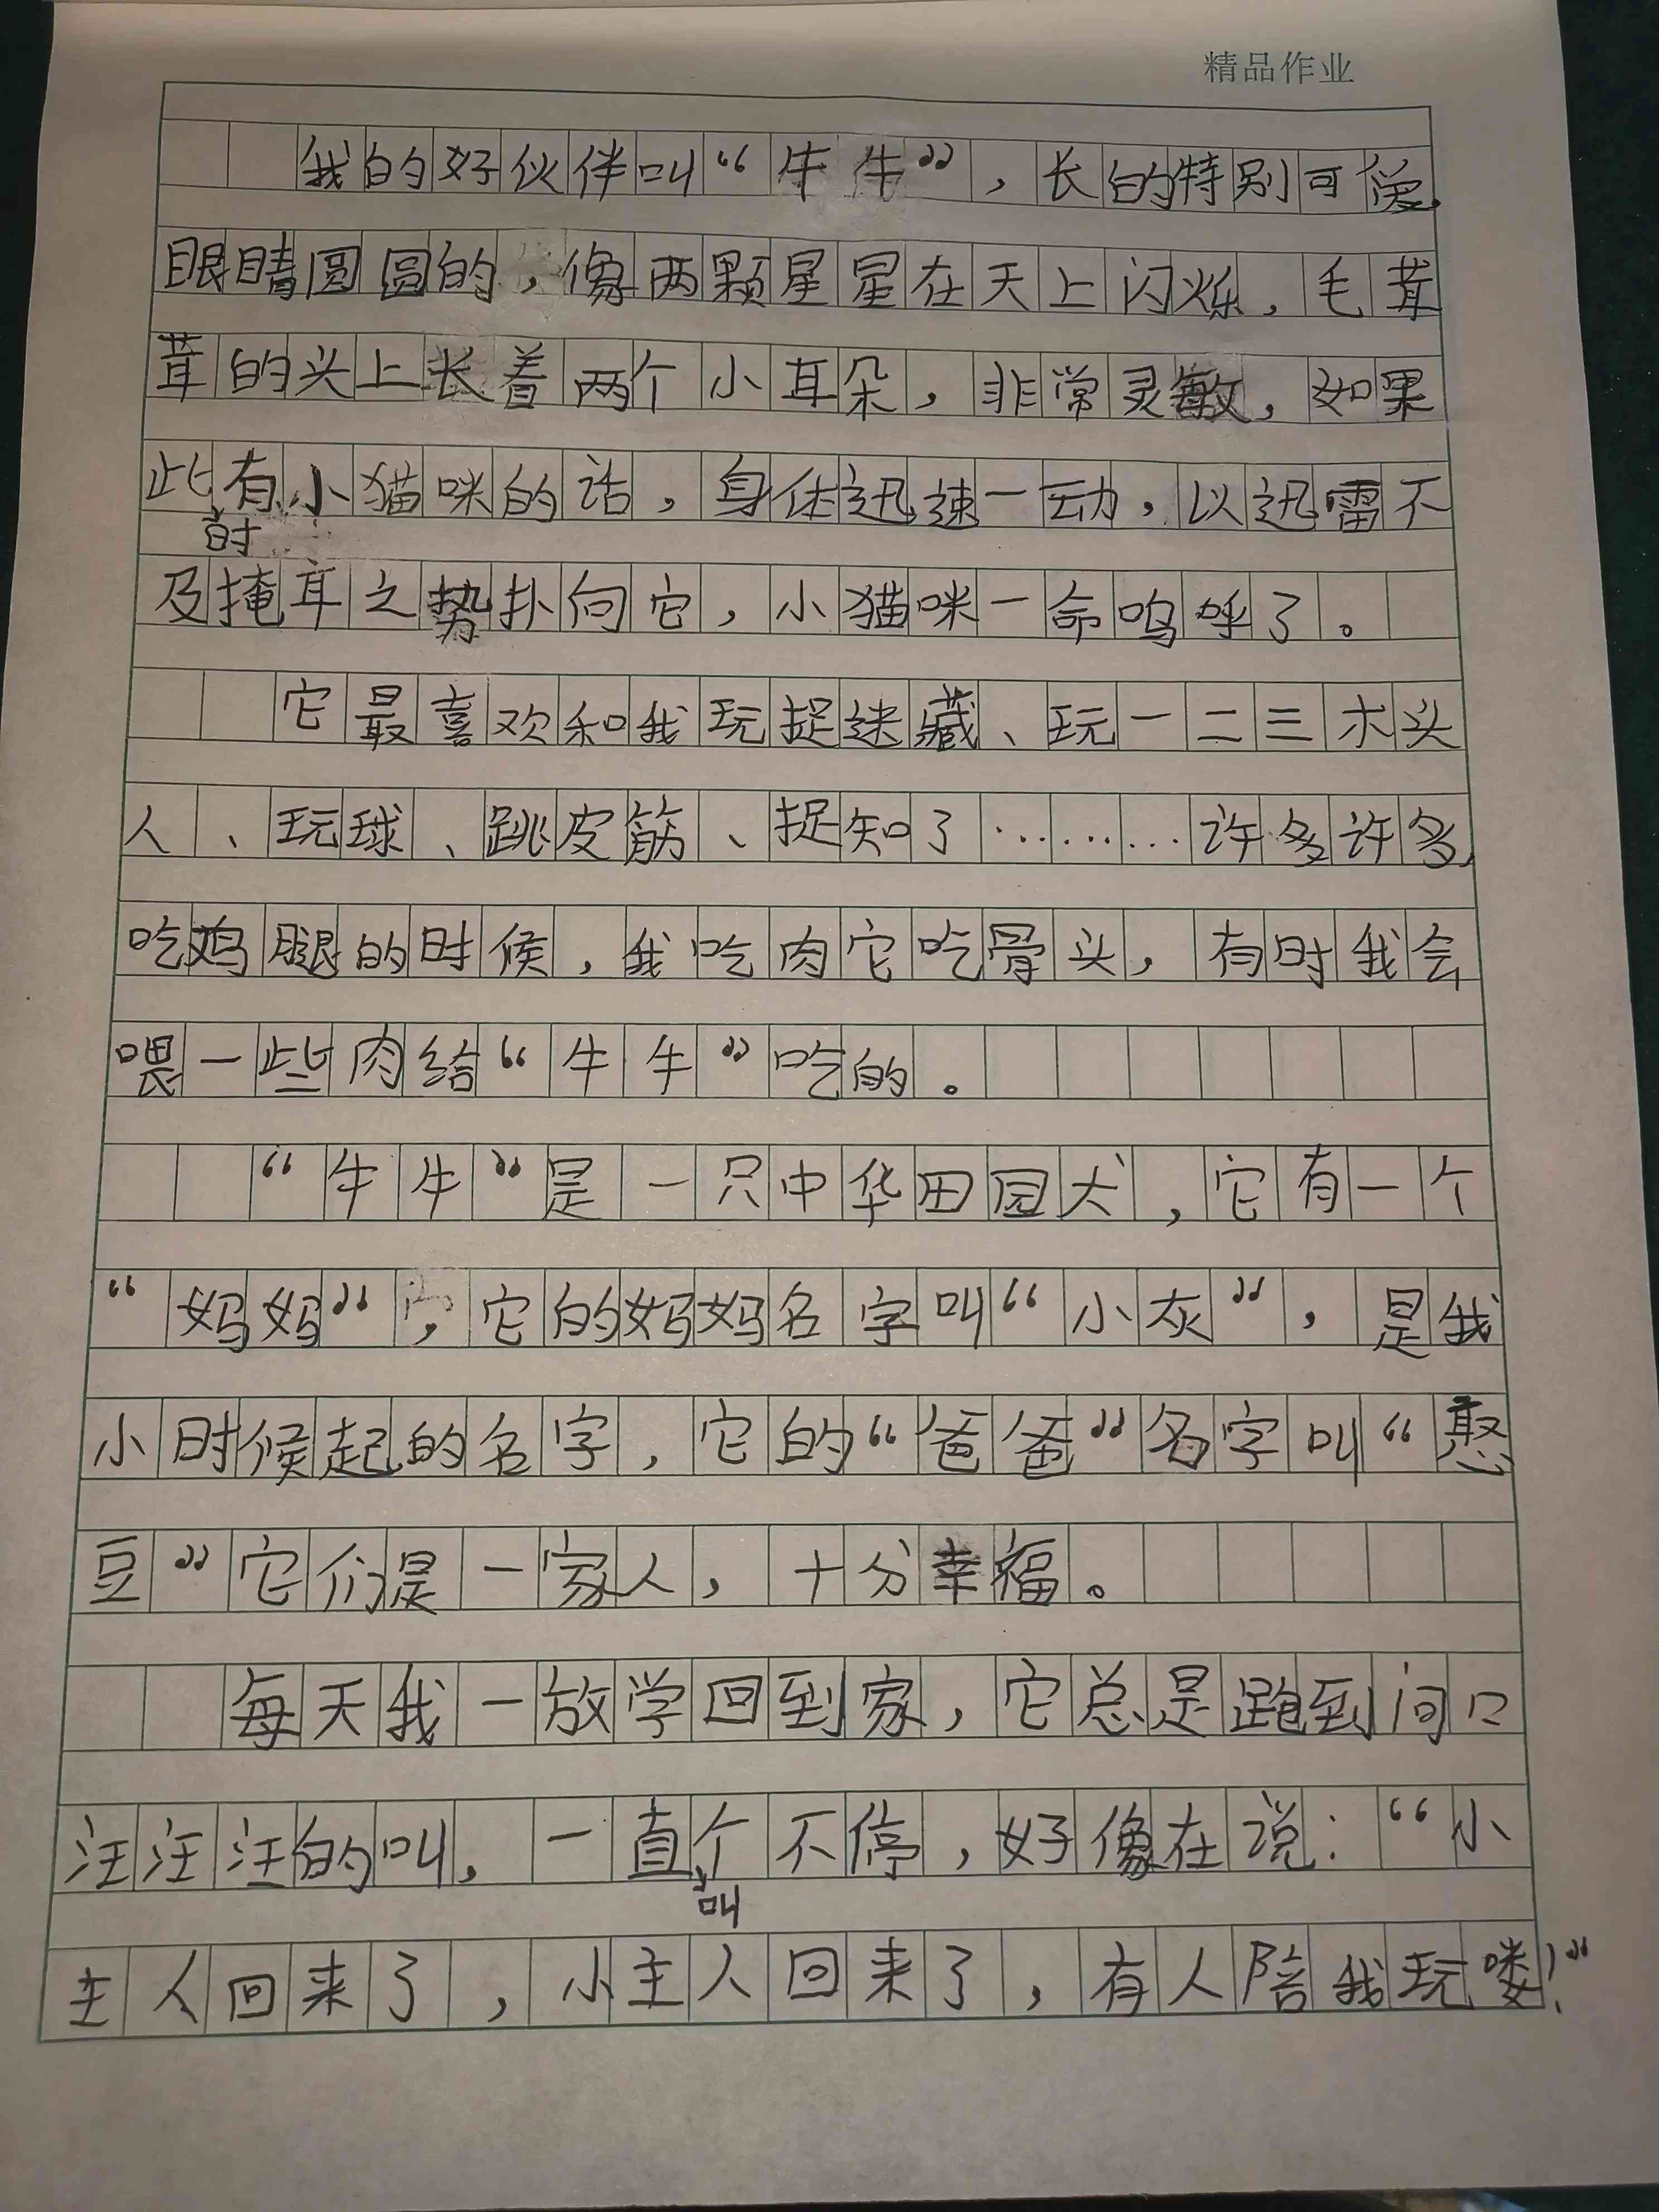 精品作业
我的好伙伴叫“牛牛”，长的特别可爱，
眼睛圆圆的，像两颗星星在天上闪烁，毛茸
茸的头上长着两个小耳朵，非常灵敏，如果
此时有小猫咪的话，身体迅速一动，以迅雷不
及掩耳之势扑向它，小猫咪一命呜呼了。
它最喜欢和我玩捉迷藏、玩一二三木头
人、玩球、跳皮筋、捉知了………许多许多，
吃鸡腿的时候，我吃肉它吃骨头，有时我会
喂一些肉给“牛牛”吃的。
“牛牛”是一只中华田园犬，它有一个
“妈妈”，它的妈妈名字叫“小灰”，是我
小时候起的名字，它的“爸爸”名字叫“憨
豆”它们是一家人，十分幸福。
每天我一放学回到家，它总是跑到间口
汪汪汪的叫，一直叫个不停，好像在说：“小
主人回来了，小主人回来了，有人陪我玩喽！”